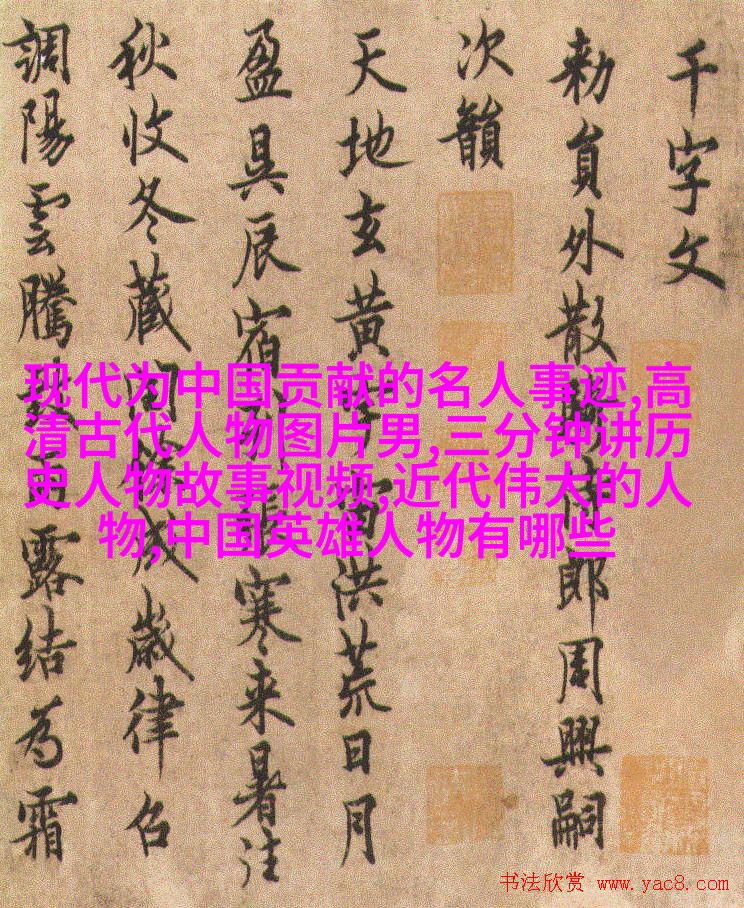 千字文
勅員外散騎侍郎周興嗣
次韻
天地玄黄宇宙洪荒日月
盈昃辰宿列張寒来暑往
秋收冬藏閏餘成歲律召
調陽雲騰致雨露結為霜
现代为中国贡献的名人事迹,高
清古代人物图片男,三分钟讲历
史人物故事视频,近代伟大的人
物,中国英雄人物有哪些
书法欣赏 www.yac8.com